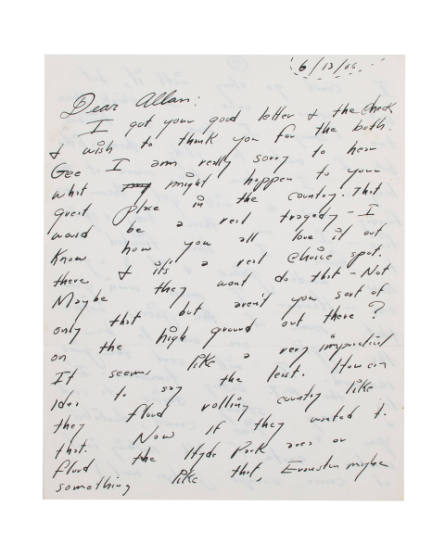 6/13/06
Dear Allan:
I got your good letter & the check
& wish to thank you for the both.
Gee I am really sorry to hear
what might happen to your
great place in the country. That
would be a real tragedy - I
know how you all love it out
there & it's a real choice spot.
Maybe they wont do that - Not
only that but aren't you sort of
on the high ground out there?
It seems like a very impractical
idea to say the least. How can
they flood rolling country like
that. Now if they wanted to
flood the Hyde Park area or
something like that, Evanston maybe